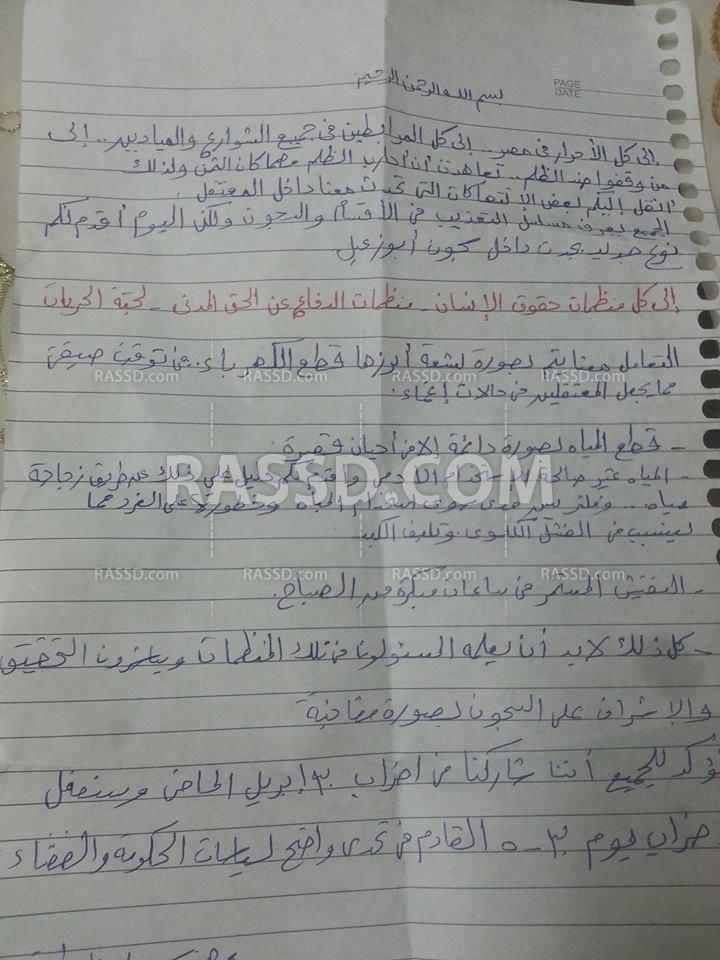 بسم الله الرحمن الرحيم
PAGE
DATE
إلى كل الأحرار فى مصر .. إلى كل المرابطين فى جميع الشوارع والميادين .. إلى
من وقفوا ضد الظلم .. تعاهدت أن أحارب الظلم مهما كان الثمن ولذلك
أنقل إليكم بعض الانتهاكات التى تحدث معنا داخل المعتقل
الجميع يعرف مسلسل التعذيب فى الأقسام والسجون ولكن اليوم أقدم لكم
نوع جديد يحدث داخل سجون أبو زعبل
إلى كل منظمات حقوق الإنسان - منظمات الدفاع عن الحق المدنى - لجنة الحريات
التعامل معنا يتم بصورة بشعة أبرزها قطع الكهرباء فى توقيت
مما يجعل المعتقلين فى حالات إغماء.
RASSD.com RASSD.com RASSD.com RASSD.com
- قطع المياه بصورة دائمة إلا فى أحيان قصيرة
- المياه غير صالحة للاستخدام الآدمى وأقدم لكم دليل على ذلك عن طريق زجاجة
RASSD.COM
مياه .. وفلتر المياه وخطورته على الفرد مما
يسبب فى الفشل الكلوى وتليف الكبد
RASSD.com RASSD.com RASSD.com RASSD.com
- التفتيش المستمر فى ساعات مبكرة من الصباح.
- كل ذلك لابد أن يعلمه المسئولون فى تلك المنظمات ويباشرون التحقيق
والإشراف على السجون بصورة
نؤكد للجميع أننا شاركنا فى اضراب ٣٠ ابريل الماضى وسنفعل
اضراب يوم ٣٠-٥ القادم فى تحدى واضح لسياسات الحكومة والقضاء